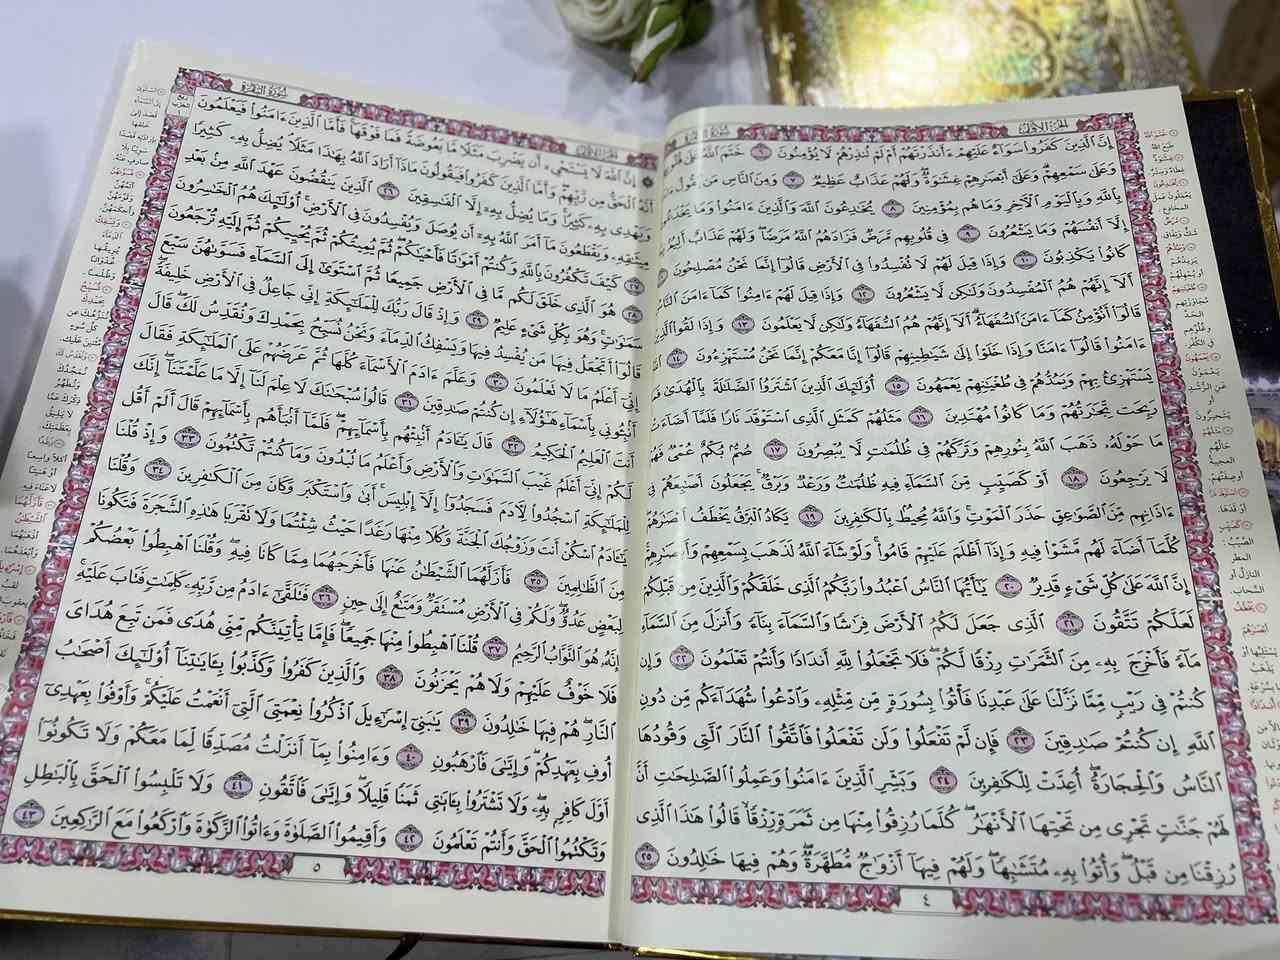 الجزء الأول
إِنَّ ٱلَّذِينَ كَفَرُوا۟ سَوَآءٌ عَلَيْهِمْ ءَأَنذَرْتَهُمْ أَمْ لَمْ تُنذِرْهُمْ لَا يُؤْمِنُونَ ٦ خَتَمَ ٱللَّهُ عَلَىٰ
وَعَلَىٰ سَمْعِهِمْ ۖ وَعَلَىٰٓ أَبْصَـٰرِهِمْ غِشَـٰوَةٌ ۖ وَلَهُمْ عَذَابٌ عَظِيمٌ ٧ وَمِنَ ٱلنَّاسِ مَن يَقُولُ
بِٱللَّهِ وَبِٱلْيَوْمِ ٱلْـَٔاخِرِ وَمَا هُم بِمُؤْمِنِينَ ٨ يُخَـٰدِعُونَ ٱللَّهَ وَٱلَّذِينَ ءَامَنُوا۟ وَمَا
إِلَّآ أَنفُسَهُمْ وَمَا يَشْعُرُونَ ٩ فِى قُلُوبِهِم مَّرَضٌ فَزَادَهُمُ ٱللَّهُ مَرَضًا ۖ وَلَهُمْ عَذَابٌ
كَانُوا۟ يَكْذِبُونَ ١٠ وَإِذَا قِيلَ لَهُمْ لَا تُفْسِدُوا۟ فِى ٱلْأَرْضِ قَالُوٓا۟ إِنَّمَا نَحْنُ مُصْلِحُونَ
أَلَآ إِنَّهُمْ هُمُ ٱلْمُفْسِدُونَ وَلَـٰكِن لَّا يَشْعُرُونَ ١٢ وَإِذَا قِيلَ لَهُمْ ءَامِنُوا۟ كَمَآ ءَامَنَ
قَالُوٓا۟ أَنُؤْمِنُ كَمَآ ءَامَنَ ٱلسُّفَهَآءُ ۗ أَلَآ إِنَّهُمْ هُمُ ٱلسُّفَهَآءُ وَلَـٰكِن لَّا يَعْلَمُونَ ١٣ وَإِذَا لَقُوا۟
ءَامَنُوا۟ قَالُوٓا۟ ءَامَنَّا وَإِذَا خَلَوْا۟ إِلَىٰ شَيَـٰطِينِهِمْ قَالُوٓا۟ إِنَّا مَعَكُمْ إِنَّمَا نَحْنُ مُسْتَهْزِءُونَ ١٤
يَسْتَهْزِئُ بِهِمْ وَيَمُدُّهُمْ فِى طُغْيَـٰنِهِمْ يَعْمَهُونَ ١٥ أُو۟لَـٰٓئِكَ ٱلَّذِينَ ٱشْتَرَوُا۟ ٱلضَّلَـٰلَةَ بِٱلْهُدَىٰ
رَبِحَت تِّجَـٰرَتُهُمْ وَمَا كَانُوا۟ مُهْتَدِينَ ١٦ مَثَلُهُمْ كَمَثَلِ ٱلَّذِى ٱسْتَوْقَدَ نَارًا فَلَمَّآ أَضَآءَتْ
مَا حَوْلَهُۥ ذَهَبَ ٱللَّهُ بِنُورِهِمْ وَتَرَكَهُمْ فِى ظُلُمَـٰتٍ لَّا يُبْصِرُونَ ١٧ صُمٌّۢ بُكْمٌ عُمْىٌ فَهُمْ
لَا يَرْجِعُونَ ١٨ أَوْ كَصَيِّبٍ مِّنَ ٱلسَّمَآءِ فِيهِ ظُلُمَـٰتٌ وَرَعْدٌ وَبَرْقٌ يَجْعَلُونَ أَصَـٰبِعَهُمْ فِىٓ
ءَاذَانِهِم مِّنَ ٱلصَّوَٰعِقِ حَذَرَ ٱلْمَوْتِ ۚ وَٱللَّهُ مُحِيطٌۢ بِٱلْكَـٰفِرِينَ ١٩ يَكَادُ ٱلْبَرْقُ يَخْطَفُ أَبْصَـٰرَهُمْ ۖ
كُلَّمَآ أَضَآءَ لَهُم مَّشَوْا۟ فِيهِ وَإِذَآ أَظْلَمَ عَلَيْهِمْ قَامُوا۟ ۚ وَلَوْ شَآءَ ٱللَّهُ لَذَهَبَ بِسَمْعِهِمْ وَأَبْصَـٰرِهِمْ ۚ
إِنَّ ٱللَّهَ عَلَىٰ كُلِّ شَىْءٍ قَدِيرٌ ٢٠ يَـٰٓأَيُّهَا ٱلنَّاسُ ٱعْبُدُوا۟ رَبَّكُمُ ٱلَّذِى خَلَقَكُمْ وَٱلَّذِينَ مِن قَبْلِكُمْ
لَعَلَّكُمْ تَتَّقُونَ ٢١ ٱلَّذِى جَعَلَ لَكُمُ ٱلْأَرْضَ فِرَٰشًا وَٱلسَّمَآءَ بِنَآءً وَأَنزَلَ مِنَ ٱلسَّمَآءِ
مَآءً فَأَخْرَجَ بِهِۦ مِنَ ٱلثَّمَرَٰتِ رِزْقًا لَّكُمْ ۖ فَلَا تَجْعَلُوا۟ لِلَّهِ أَندَادًا وَأَنتُمْ تَعْلَمُونَ ٢٢ وَإِن
كُنتُمْ فِى رَيْبٍ مِّمَّا نَزَّلْنَا عَلَىٰ عَبْدِنَا فَأْتُوا۟ بِسُورَةٍ مِّن مِّثْلِهِۦ وَٱدْعُوا۟ شُهَدَآءَكُم مِّن دُونِ
ٱللَّهِ إِن كُنتُمْ صَـٰدِقِينَ ٢٣ فَإِن لَّمْ تَفْعَلُوا۟ وَلَن تَفْعَلُوا۟ فَٱتَّقُوا۟ ٱلنَّارَ ٱلَّتِى وَقُودُهَا
ٱلنَّاسُ وَٱلْحِجَارَةُ ۖ أُعِدَّتْ لِلْكَـٰفِرِينَ ٢٤ وَبَشِّرِ ٱلَّذِينَ ءَامَنُوا۟ وَعَمِلُوا۟ ٱلصَّـٰلِحَـٰتِ أَنَّ
لَهُمْ جَنَّـٰتٍ تَجْرِى مِن تَحْتِهَا ٱلْأَنْهَـٰرُ ۖ كُلَّمَا رُزِقُوا۟ مِنْهَا مِن ثَمَرَةٍ رِّزْقًا ۙ قَالُوا۟ هَـٰذَا ٱلَّذِى
رُزِقْنَا مِن قَبْلُ ۖ وَأُتُوا۟ بِهِۦ مُتَشَـٰبِهًا ۖ وَلَهُمْ فِيهَآ أَزْوَٰجٌ مُّطَهَّرَةٌ ۖ وَهُمْ فِيهَا خَـٰلِدُونَ ٢٥
٤
سورة البقرة
الجزء الأول
إِنَّ ٱللَّهَ لَا يَسْتَحْىِۦٓ أَن يَضْرِبَ مَثَلًا مَّا بَعُوضَةً فَمَا فَوْقَهَا ۚ فَأَمَّا ٱلَّذِينَ ءَامَنُوا۟ فَيَعْلَمُونَ
أَنَّهُ ٱلْحَقُّ مِن رَّبِّهِمْ ۖ وَأَمَّا ٱلَّذِينَ كَفَرُوا۟ فَيَقُولُونَ مَاذَآ أَرَادَ ٱللَّهُ بِهَـٰذَا مَثَلًا ۘ يُضِلُّ بِهِۦ كَثِيرًا
وَيَهْدِى بِهِۦ كَثِيرًا ۚ وَمَا يُضِلُّ بِهِۦٓ إِلَّا ٱلْفَـٰسِقِينَ ٢٦ ٱلَّذِينَ يَنقُضُونَ عَهْدَ ٱللَّهِ مِنۢ بَعْدِ
مِيثَـٰقِهِۦ وَيَقْطَعُونَ مَآ أَمَرَ ٱللَّهُ بِهِۦٓ أَن يُوصَلَ وَيُفْسِدُونَ فِى ٱلْأَرْضِ ۚ أُو۟لَـٰٓئِكَ هُمُ ٱلْخَـٰسِرُونَ
٢٧ كَيْفَ تَكْفُرُونَ بِٱللَّهِ وَكُنتُمْ أَمْوَٰتًا فَأَحْيَـٰكُمْ ۖ ثُمَّ يُمِيتُكُمْ ثُمَّ يُحْيِيكُمْ ثُمَّ إِلَيْهِ تُرْجَعُونَ
٢٨ هُوَ ٱلَّذِى خَلَقَ لَكُم مَّا فِى ٱلْأَرْضِ جَمِيعًا ثُمَّ ٱسْتَوَىٰٓ إِلَى ٱلسَّمَآءِ فَسَوَّىٰهُنَّ سَبْعَ
سَمَـٰوَٰتٍ ۚ وَهُوَ بِكُلِّ شَىْءٍ عَلِيمٌ ٢٩ وَإِذْ قَالَ رَبُّكَ لِلْمَلَـٰٓئِكَةِ إِنِّى جَاعِلٌ فِى ٱلْأَرْضِ خَلِيفَةً ۖ
قَالُوٓا۟ أَتَجْعَلُ فِيهَا مَن يُفْسِدُ فِيهَا وَيَسْفِكُ ٱلدِّمَآءَ وَنَحْنُ نُسَبِّحُ بِحَمْدِكَ وَنُقَدِّسُ لَكَ ۖ قَالَ
إِنِّىٓ أَعْلَمُ مَا لَا تَعْلَمُونَ ٣٠ وَعَلَّمَ ءَادَمَ ٱلْأَسْمَآءَ كُلَّهَا ثُمَّ عَرَضَهُمْ عَلَى ٱلْمَلَـٰٓئِكَةِ فَقَالَ
أَنۢبِـُٔونِى بِأَسْمَآءِ هَـٰٓؤُلَآءِ إِن كُنتُمْ صَـٰدِقِينَ ٣١ قَالُوا۟ سُبْحَـٰنَكَ لَا عِلْمَ لَنَآ إِلَّا مَا عَلَّمْتَنَآ ۖ إِنَّكَ
أَنتَ ٱلْعَلِيمُ ٱلْحَكِيمُ ٣٢ قَالَ يَـٰٓـَٔادَمُ أَنۢبِئْهُم بِأَسْمَآئِهِمْ ۖ فَلَمَّآ أَنۢبَأَهُم بِأَسْمَآئِهِمْ قَالَ أَلَمْ أَقُل
لَّكُمْ إِنِّىٓ أَعْلَمُ غَيْبَ ٱلسَّمَـٰوَٰتِ وَٱلْأَرْضِ وَأَعْلَمُ مَا تُبْدُونَ وَمَا كُنتُمْ تَكْتُمُونَ ٣٣ وَإِذْ قُلْنَا
لِلْمَلَـٰٓئِكَةِ ٱسْجُدُوا۟ لِـَٔادَمَ فَسَجَدُوٓا۟ إِلَّآ إِبْلِيسَ أَبَىٰ وَٱسْتَكْبَرَ وَكَانَ مِنَ ٱلْكَـٰفِرِينَ ٣٤ وَقُلْنَا
يَـٰٓـَٔادَمُ ٱسْكُنْ أَنتَ وَزَوْجُكَ ٱلْجَنَّةَ وَكُلَا مِنْهَا رَغَدًا حَيْثُ شِئْتُمَا وَلَا تَقْرَبَا هَـٰذِهِ ٱلشَّجَرَةَ فَتَكُونَا
مِنَ ٱلظَّـٰلِمِينَ ٣٥ فَأَزَلَّهُمَا ٱلشَّيْطَـٰنُ عَنْهَا فَأَخْرَجَهُمَا مِمَّا كَانَا فِيهِ ۖ وَقُلْنَا ٱهْبِطُوا۟ بَعْضُكُمْ
لِبَعْضٍ عَدُوٌّ ۖ وَلَكُمْ فِى ٱلْأَرْضِ مُسْتَقَرٌّ وَمَتَـٰعٌ إِلَىٰ حِينٍ ٣٦ فَتَلَقَّىٰٓ ءَادَمُ مِن رَّبِّهِۦ كَلِمَـٰتٍ فَتَابَ عَلَيْهِ ۚ
إِنَّهُۥ هُوَ ٱلتَّوَّابُ ٱلرَّحِيمُ ٣٧ قُلْنَا ٱهْبِطُوا۟ مِنْهَا جَمِيعًا ۖ فَإِمَّا يَأْتِيَنَّكُم مِّنِّى هُدًى فَمَن تَبِعَ هُدَاىَ
فَلَا خَوْفٌ عَلَيْهِمْ وَلَا هُمْ يَحْزَنُونَ ٣٨ وَٱلَّذِينَ كَفَرُوا۟ وَكَذَّبُوا۟ بِـَٔايَـٰتِنَآ أُو۟لَـٰٓئِكَ أَصْحَـٰبُ
ٱلنَّارِ ۖ هُمْ فِيهَا خَـٰلِدُونَ ٣٩ يَـٰبَنِىٓ إِسْرَٰٓءِيلَ ٱذْكُرُوا۟ نِعْمَتِىَ ٱلَّتِىٓ أَنْعَمْتُ عَلَيْكُمْ وَأَوْفُوا۟ بِعَهْدِىٓ
أُوفِ بِعَهْدِكُمْ وَإِيَّـٰىَ فَٱرْهَبُونِ ٤٠ وَءَامِنُوا۟ بِمَآ أَنزَلْتُ مُصَدِّقًا لِّمَا مَعَكُمْ وَلَا تَكُونُوٓا۟
أَوَّلَ كَافِرٍۭ بِهِۦ ۖ وَلَا تَشْتَرُوا۟ بِـَٔايَـٰتِى ثَمَنًا قَلِيلًا وَإِيَّـٰىَ فَٱتَّقُونِ ٤١ وَلَا تَلْبِسُوا۟ ٱلْحَقَّ بِٱلْبَـٰطِلِ
وَتَكْتُمُوا۟ ٱلْحَقَّ وَأَنتُمْ تَعْلَمُونَ ٤٢ وَأَقِيمُوا۟ ٱلصَّلَوٰةَ وَءَاتُوا۟ ٱلزَّكَوٰةَ وَٱرْكَعُوا۟ مَعَ ٱلرَّٰكِعِينَ ٤٣
٥